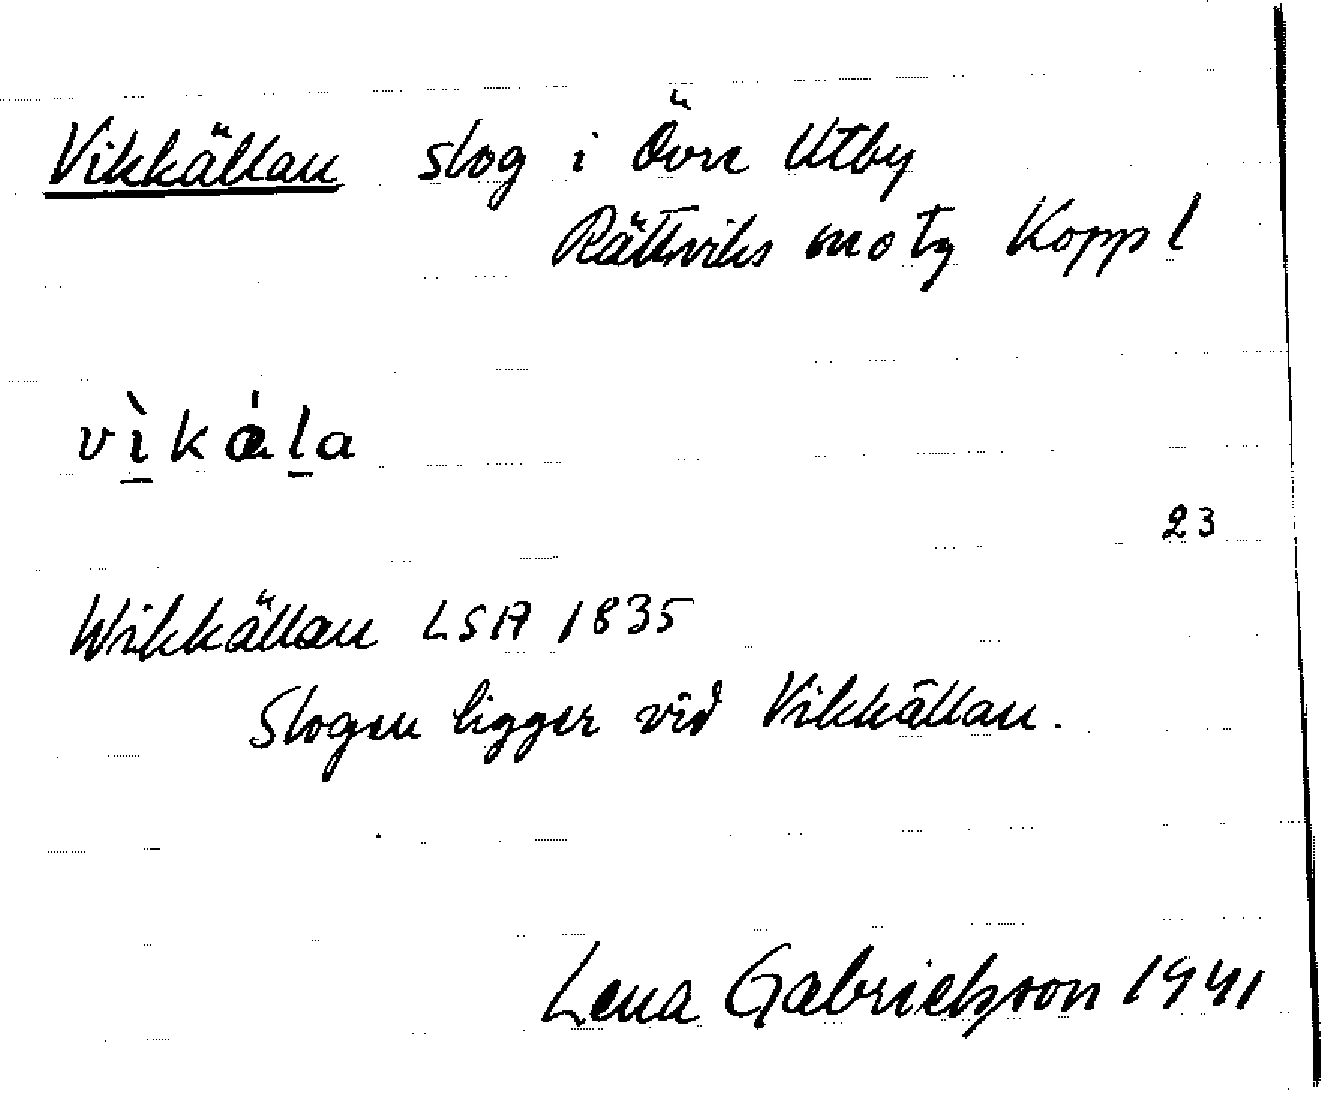 Vikkällan slog i Övre Utby
Rättviks sn o tg Koppl
vìkä̀la
23
Wikkällan LSA 1835
Slogen ligger vid Vikkällan.
Lena Gabrielsson 1941